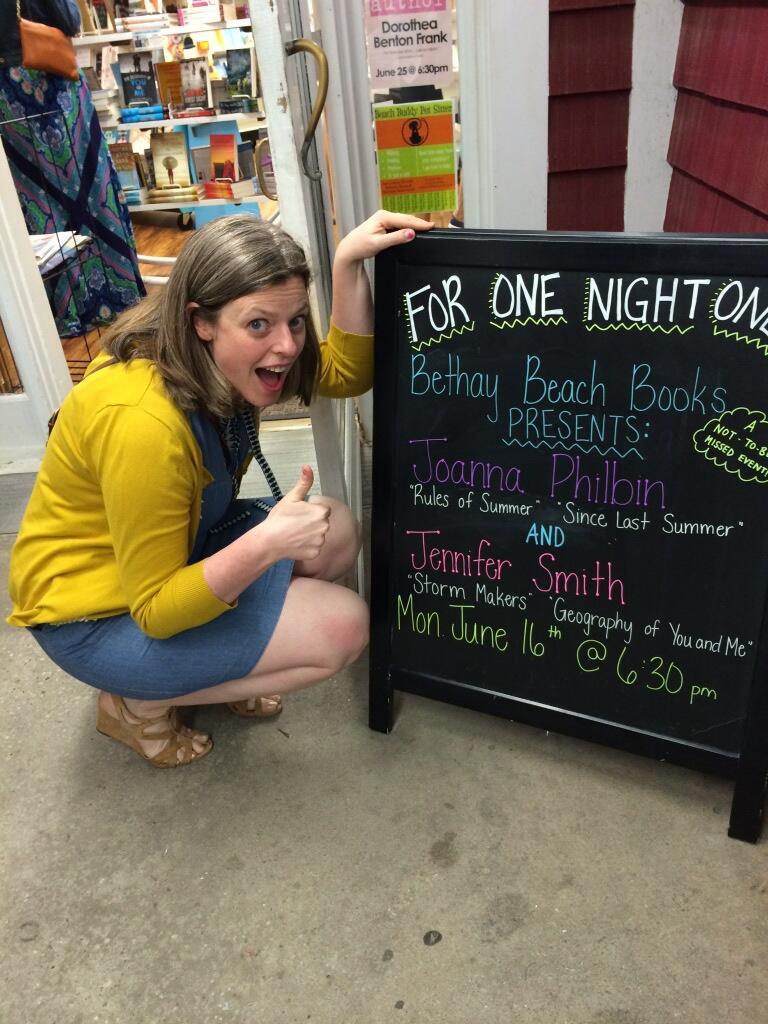 author
Dorothea
Benton Frank
June 25 @ 6:30pm
Beach Buddy Pet Sitter
FOR ONE NIGHT ONL
Bethay Beach Books
PRESENTS:
A
NOT-TO-B
MISSED EVENT!
Joanna Philbin
"Rules of Summer" "Since Last Summer"
AND
Jennifer Smith
"Storm Makers" "Geography of You and Me"
Mon. June 16th @ 6:30 pm